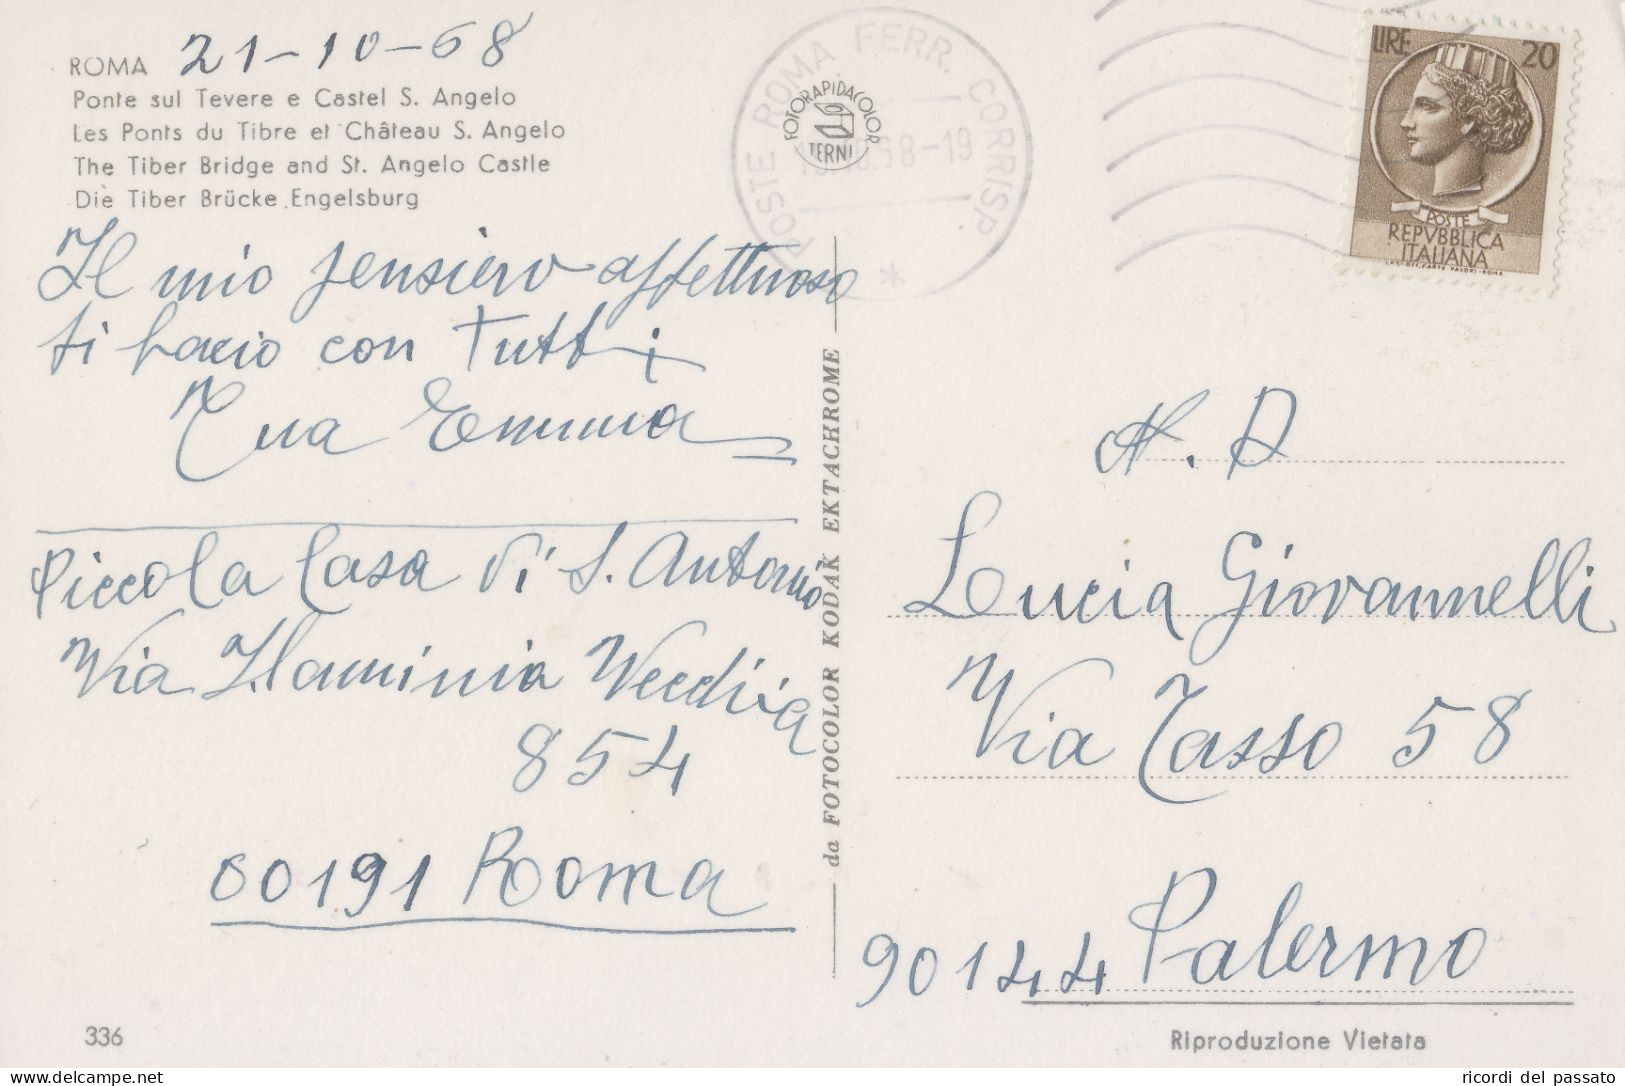 ROMA 21-10-68
Ponte sul Tevere e Castel S. Angelo
Les Ponts du Tibre et Château S. Angelo
The Tiber Bridge and St. Angelo Castle
Die Tiber Brücke Engelsburg
Il mio pensiero affettuoso
ti bacio con Tutti
Tua Emma
Piccola Casa di S. Antonio
Via Flaminia Vecchia
854
00191 Roma
336
POSTE ROMA FERR. CORRISP.
FOTORAPIDACOLOR
TERNI
da FOTOCOLOR KODAK EKTACHROME
LIRE 20
POSTE
REPVBBLICA
ITALIANA
N. D
Lucia Giovannelli
Via Tasso 58
90144 Palermo
Riproduzione Vietata
delcampe.net
ricordi del passato